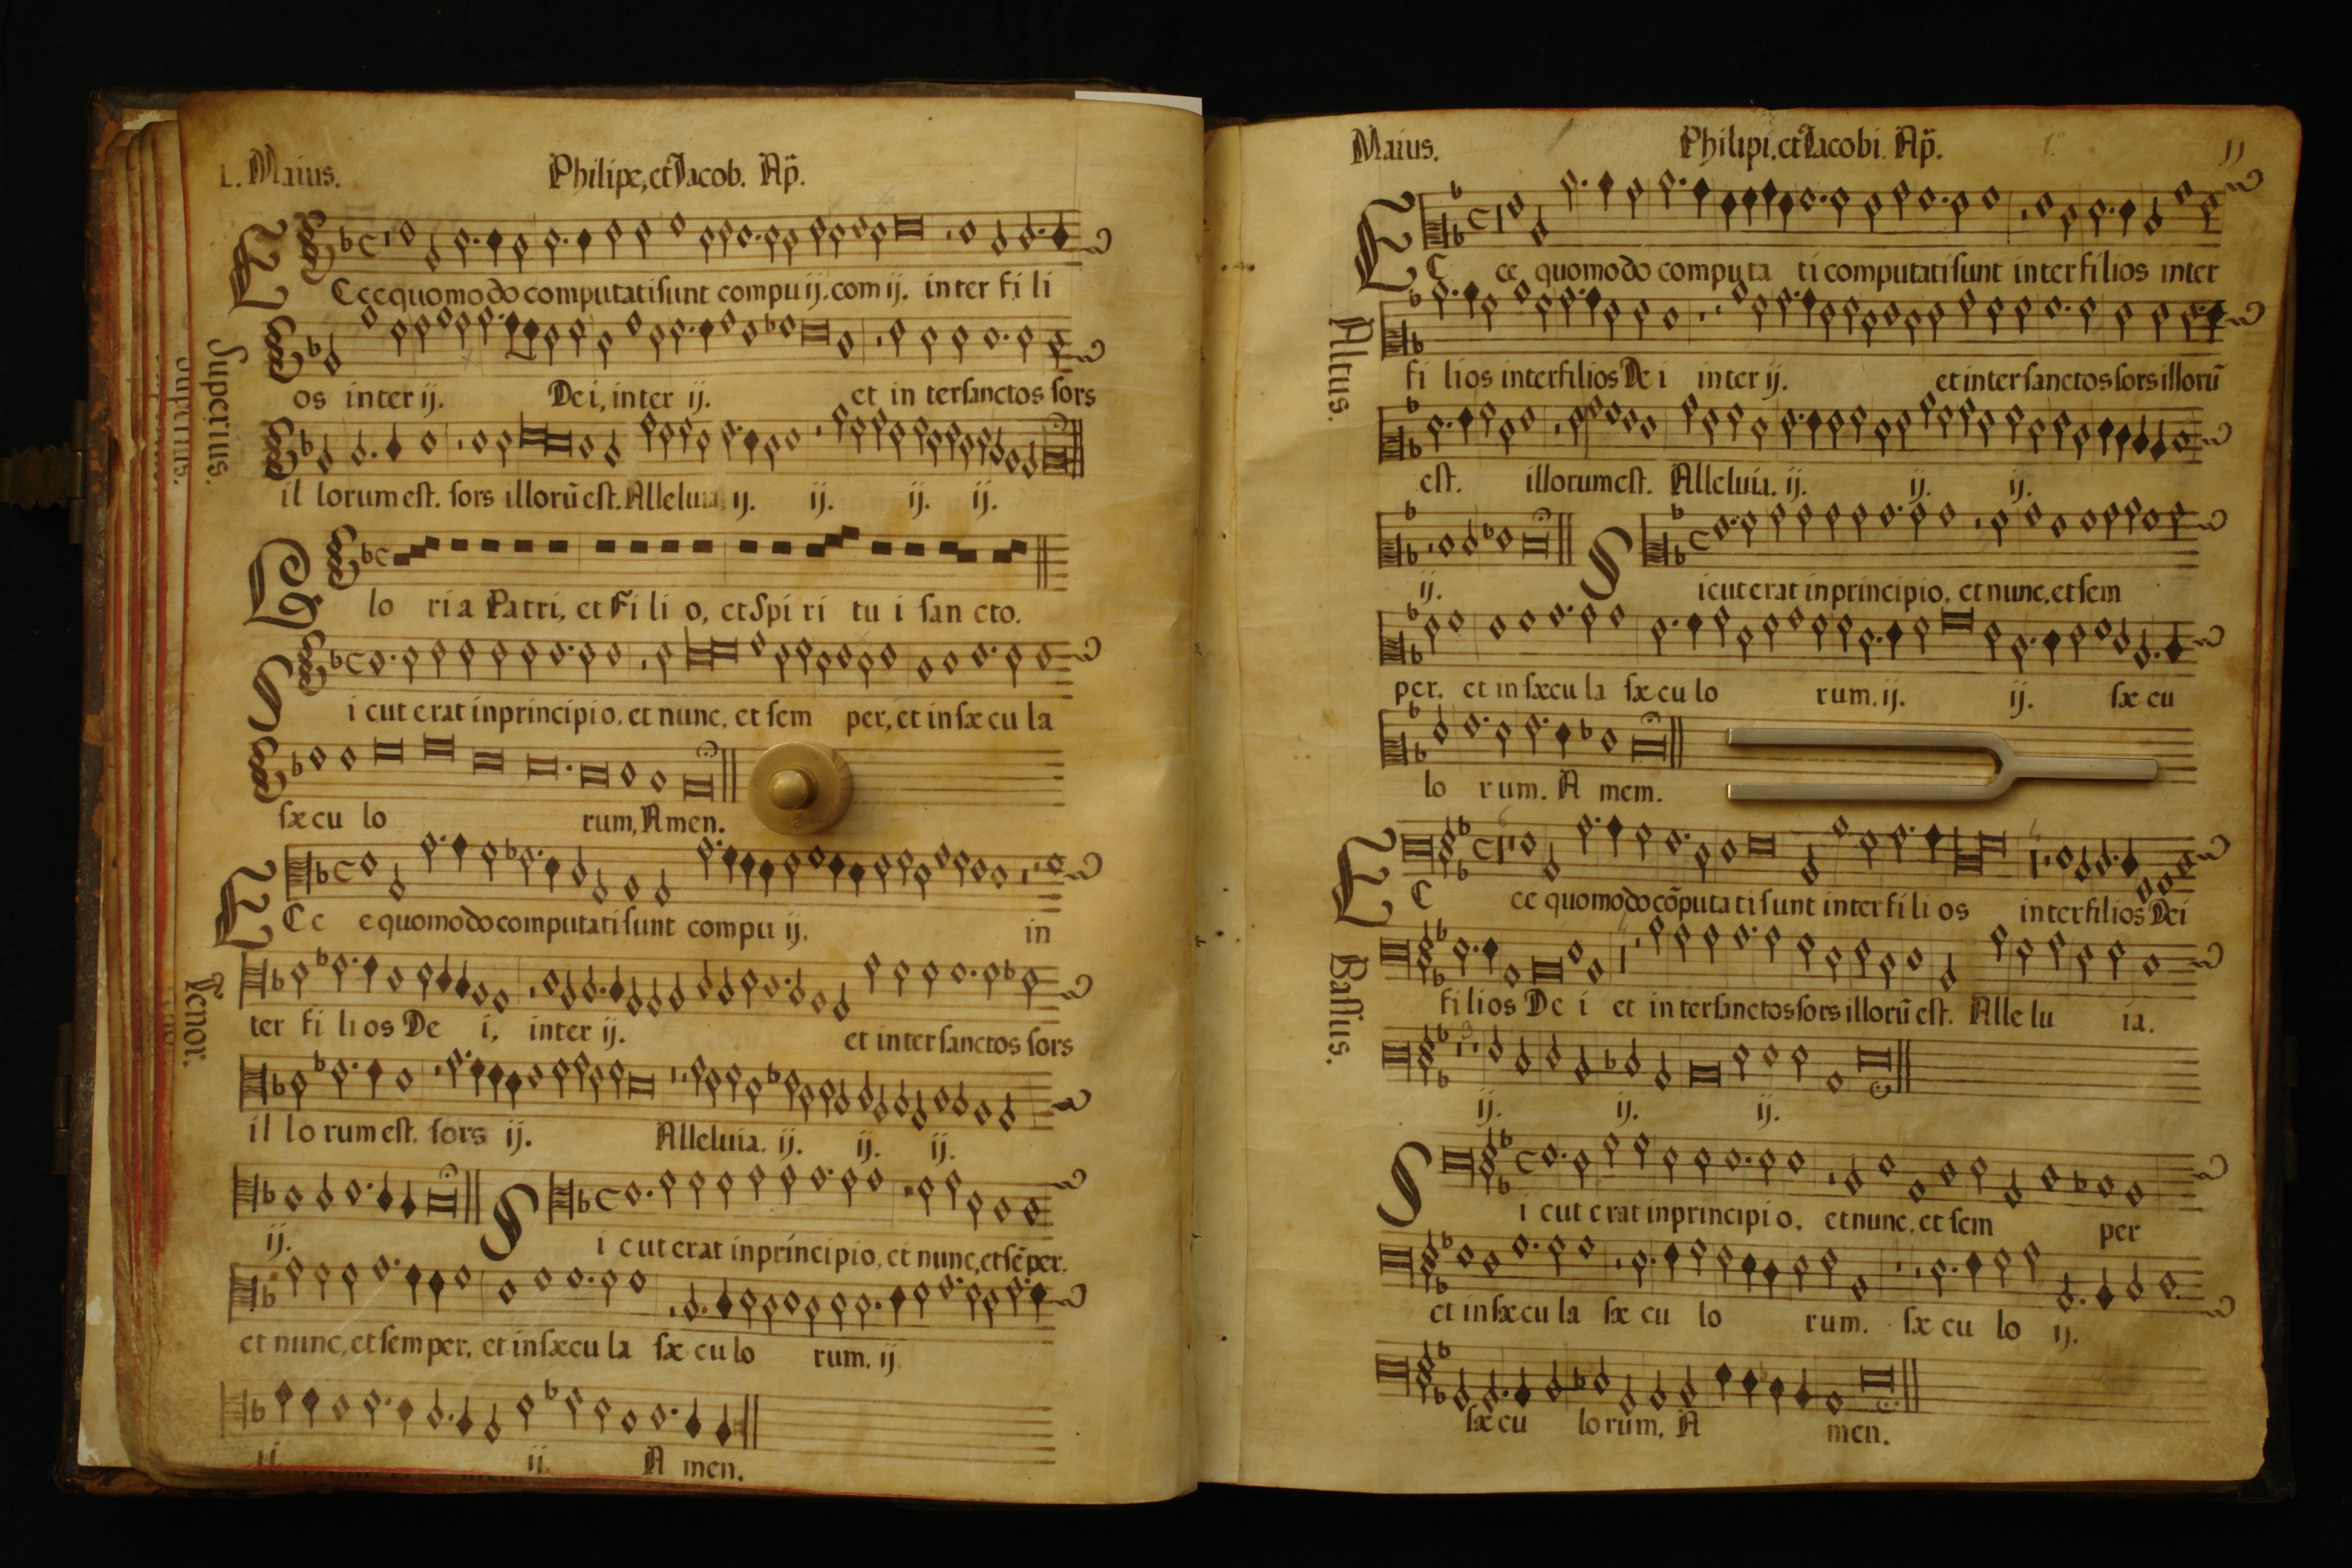 1. Maius. Philipe, et Iacob. Ap̃.
Superius.
ECce quomodo computati sunt compu ij. com ij. inter fi li
os inter ij. Dei, inter ij. et in ter sanctos sors
il lorum est. sors illorũ est. Alleluia ij. ij. ij. ij.
Glo ria Patri, et Fi li o, et Spi ri tu i san cto.
S i cut erat in principio, et nunc, et sem per, et in sæ cu la
sæ cu lo rum, Amen.
Tenor.
ECc e quomodo computati sunt compu ij. in
ter fi li os De i, inter ij. et inter sanctos sors
il lo rum est. sors ij. Alleluia. ij. ij. ij.
ij. S i cut erat in principio, et nunc, et sẽper.
et nunc, et semper, et in sæcu la sæ cu lo rum. ij
ij. ij. A men.
Maius. Philipi, et Iacobi. Ap̃. 11
Altus.
EC ce quomodo computa ti computati sunt inter filios inter
fi lios inter filios De i inter ij. et inter sanctos sors illorũ
est. illorum est. Alleluia. ij. ij. ij.
ij. S icut erat in principio, et nunc, et sem
per, et in sæcu la sæ cu lo rum. ij. ij. sæ cu
lo rum. A mem.
Bassus.
EC ce quomodo cõputa ti sunt inter fi li os inter filios Dei
filios De i et in ter sanctos sors illorũ est. Alle lu ia.
ij. ij. ij.
S i cut erat in principi o, et nunc, et sem per
et in sæ cu la sæ cu lo rum. sæ cu lo ij.
sæ cu lo rum, A men.